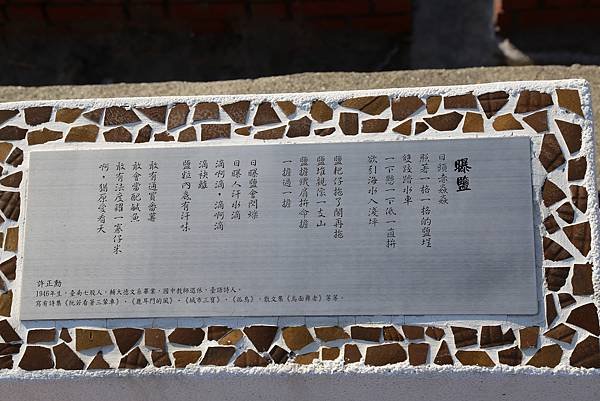 曝鹽
日頭赤焱焱
照著一格一格的鹽埕
雙跤踏水車
一下懸,一下低,一直拚
欲引海水入淺坪
鹽耙仔拖了閣再拖
鹽堆親像一支山
鹽擔鐵肩拚命擔
一擔過一擔
日曝鹽會閃爍
日曝人汗水滴
滴啊滴,滴啊滴
滴袂離
鹽粒內底有汗味
敢有通買番薯
敢會當配鹹魚
敢有法度糴一寡仔米
啊,猶原愛看天
許正勳
1946年生,臺南七股人,輔大德文系畢業,國中教師退休,臺語詩人。
寫有詩集《阮若看著三輦車》、《鹿耳門的風》、《城市三寶》、《孤鳥》,散文集《烏面舞者》等等。